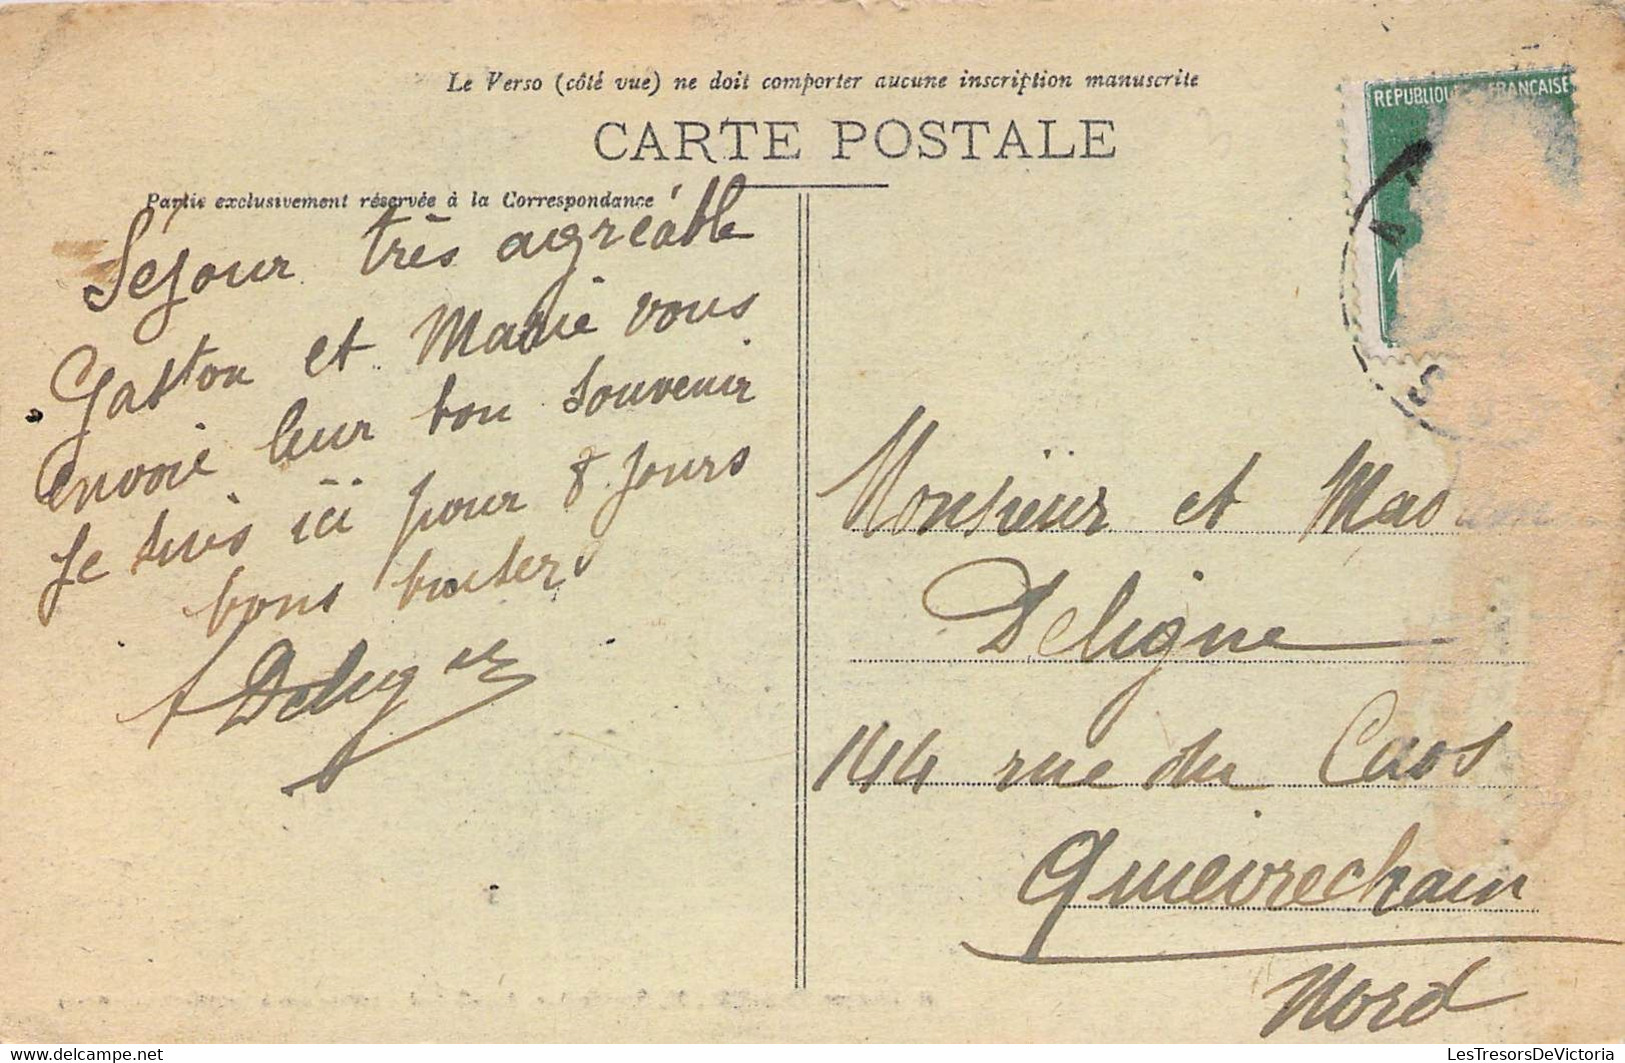 Le Verso (côté vue) ne doit comporter aucune inscription manuscrite
CARTE POSTALE
Partie exclusivement réservée à la Correspondance
Séjour très agréable
Gaston et Marie vous
envoie leur bon souvenir
Je suis ici pour 8 jours
bons baisers
Deligne
REPUBLIQUE FRANÇAISE
Monsieur et
Deligne
144 rue du
Quievrechain
Nord
LesTresorsDeVictoria